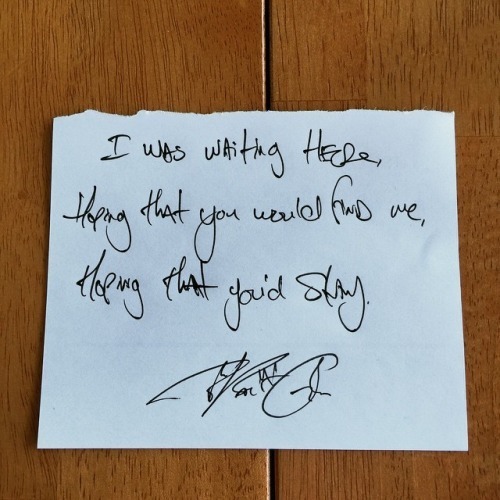 I was waiting Here,
Hoping that you would find me,
Hoping that you'd stay.